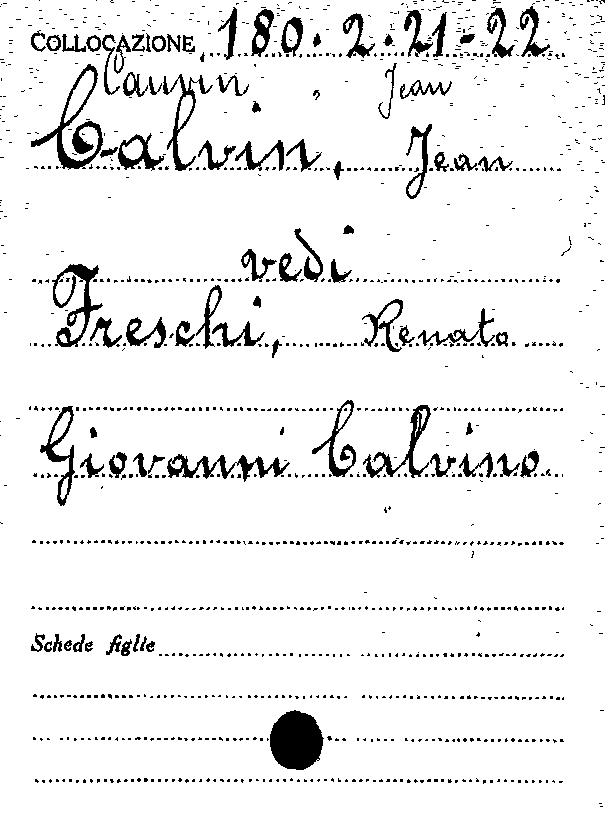 COLLOCAZIONE 180.2.21-22
Cauvin, Jean
Calvin, Jean
vedi
Freschi, Renato
Giovanni Calvino.
Schede figlie